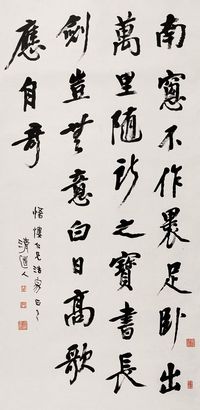 南窻不作裹足卧出
萬里隨所之寶書長
劍豈無意白日高歌
應自奇
仁兄法家正之
清道人